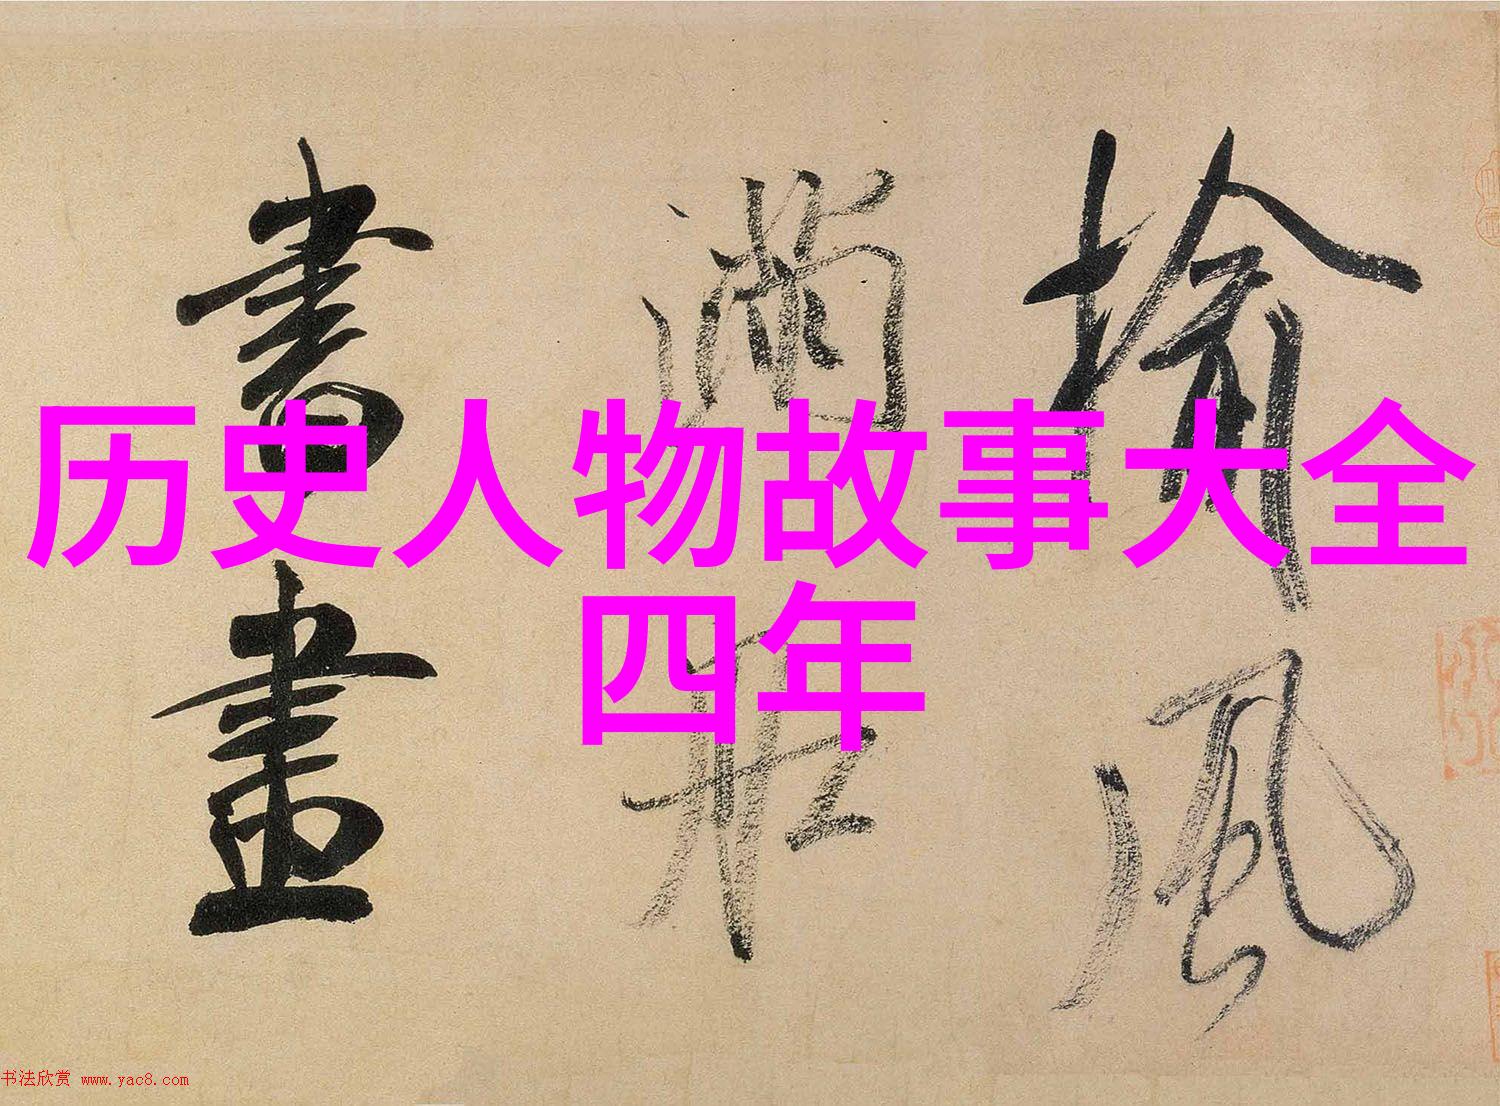 榆風
滿船
書畫
历史人物故事大全
四年
书法欣赏 www.yac8.com